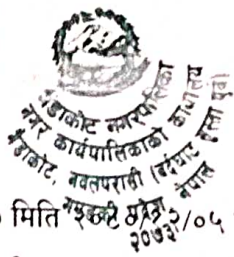 गैंडाकोट नगरपालिका
नगर कार्यपालिकाको कार्यालय
गैंडाकोट, नवलपरासी (बर्दघाट सुस्ता पूर्व)
गण्डकी प्रदेश, नेपाल
२०७३
मिति २/०५